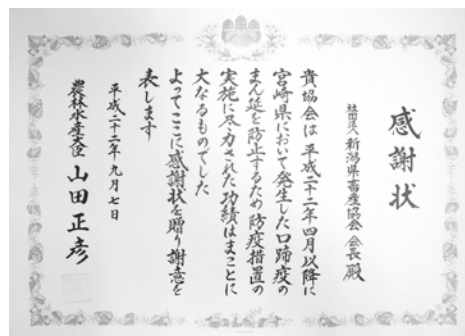 感謝状
社団法人 新潟県畜産協会 会長 殿
貴協会は平成二十二年四月以降に
宮崎県において発生した口蹄疫の
まん延を防止するため防疫措置の
実施に尽力された功績はまことに
大なるものでした
よってここに感謝状を贈り謝意を
表します
平成二十二年九月七日
農林水産大臣 山田正彦